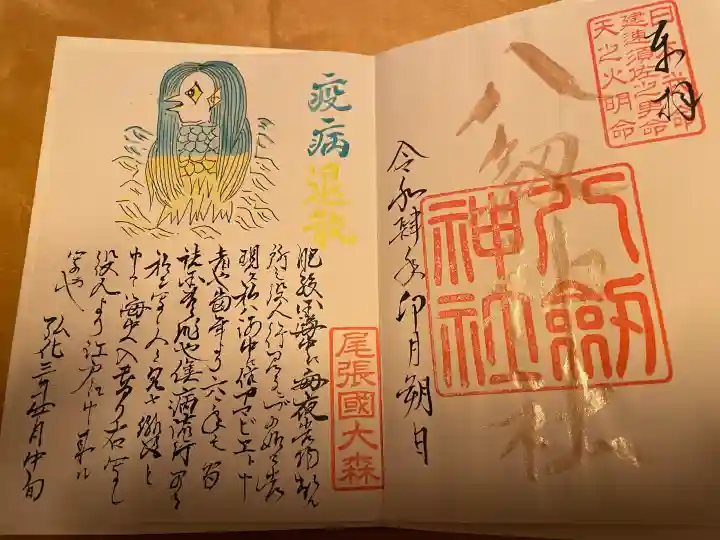 奉拝
建速須佐之男命
天之火明命
八剱神社
八劔神社
令和肆年卯月朔日
疫病
退散
肥後国海中江毎夜光物出ル
所之役人行見るニづの如く者
現ス私ハ海中ニ住アマビヱト申
者也當年より六ヶ年之間
諸国豊作也併病流行早々
私写シ人々ニ見せ候得と
申て海中へ入けり右写シ
役人より江戸江申来ル
写也 弘化三年四月中旬
尾張國大森